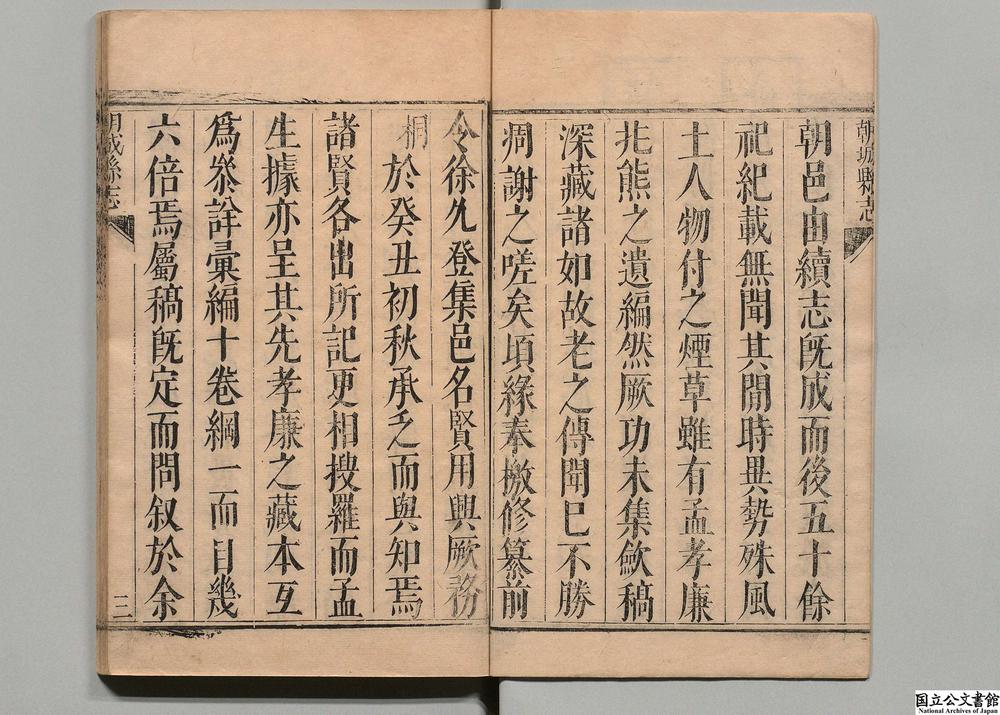 朝城縣志
朝邑由續志旣成而後五十餘
祀紀載無聞其間時異勢殊風
土人物付之煙草雖有孟孝廉
兆熊之遺編然厥功未集斂稿
深藏諸如故老之傳聞巳不勝
凋謝之嗟矣頃緣奉檄修纂前
令徐允登集邑名賢用興厥務
桐於癸丑初秋承乏而與知焉
諸賢各出所記更相搜羅而孟
生據亦呈其先孝廉之藏本互
爲叅詳彙編十卷綱一而目幾
六倍焉屬稿旣定而問叙於余
朝城縣志
三
国立公文書館
National Archives of Japan